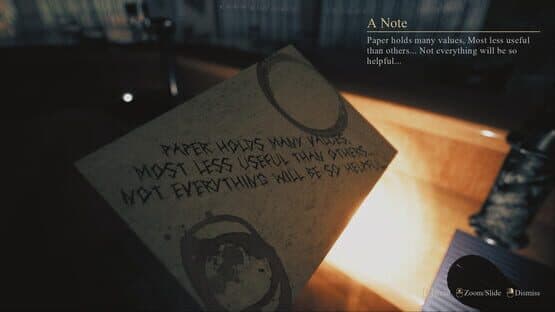 A Note
Paper holds many values, Most less useful
than others... Not everything will be so
helpful...
PAPER HOLDS MANY VALUES,
MOST LESS USEFUL THAN OTHERS...
NOT EVERYTHING WILL BE SO HELPFUL...
Zoom/Slide Dismiss